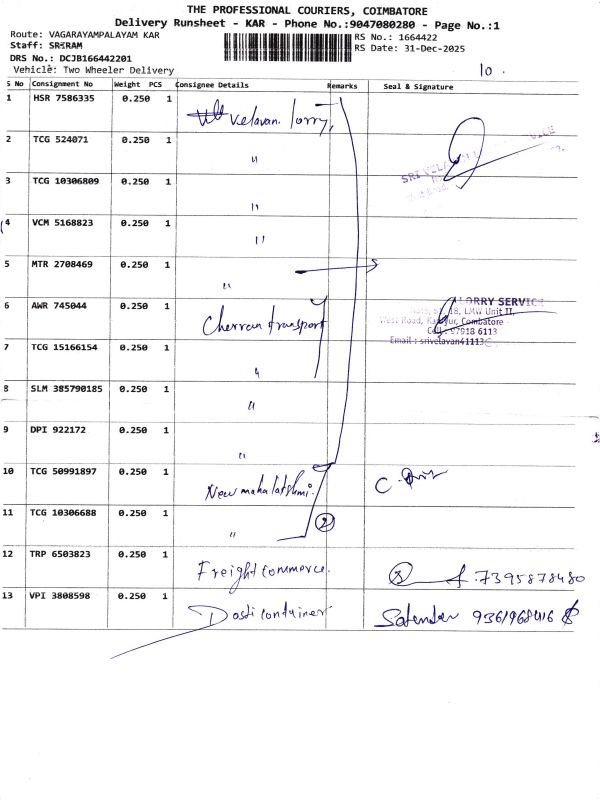 THE PROFESSIONAL COURIERS, COIMBATORE
Delivery Runsheet - KAR - Phone No.:9047080280 - Page No.:1
Route: VAGARAYAMPALAYAM KAR
RS No.: 1664422
Staff: SRIRAM
RS Date: 31-Dec-2025
DRS No.: DCJB166442201
Vehicle: Two Wheeler Delivery
10.
S No Consignment No Weight PCS Consignee Details Remarks Seal & Signature
1 HSR 7586335 0.250 1 Velavan lorry,
2 TCG 524071 0.250 1 "
3 TCG 10306809 0.250 1 "
4 VCM 5168823 0.250 1 "
5 MTR 2708469 0.250 1 "
6 AWR 745044 0.250 1 Cherran transport
LORRY SERVICE
18, LMW Unit II,
West Road, Coimbatore
Cell: 97918 6113
Email : srivelavan41113
7 TCG 15166154 0.250 1 "
8 SLM 385790185 0.250 1 "
9 DPI 922172 0.250 1 "
10 TCG 50991897 0.250 1 New mahalatshmi. C.
11 TCG 10306688 0.250 1 " 2
12 TRP 6503823 0.250 1 Freight commerce. 7395878480
13 VPI 3808598 0.250 1 Dosti container Satender 9361968416